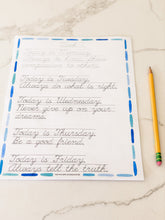 Today is Monday.
Today is Tuesday.
Always do what is right.
Today is Wednesday.
Never give up on your
dreams.
Today is Thursday.
Be a good friend.
Today is Friday.
Always tell the truth.